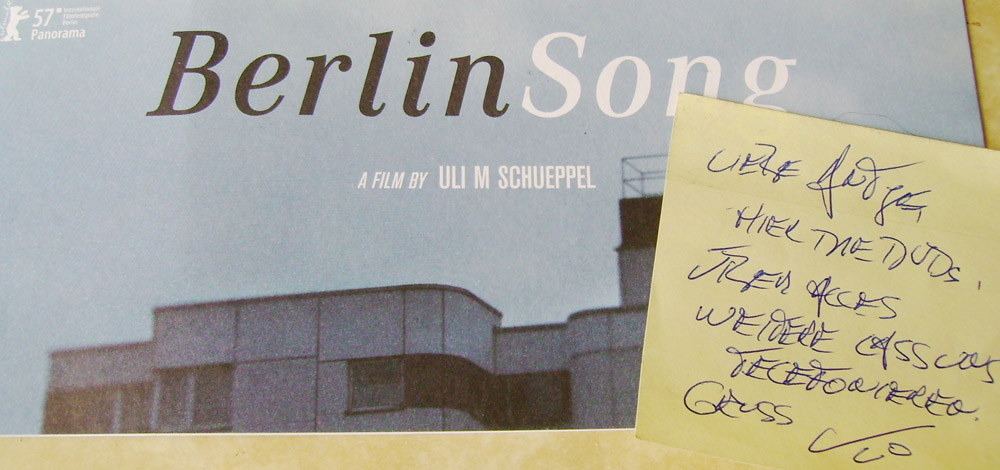 57 Internationale
Filmfestspiele
Berlin
Panorama
BerlinSong
A FILM BY ULI M SCHUEPPEL
LIEBE ANTJE,
HIER THE DVDS,
ÜBER ALLES
WEITERE LASS UNS
TELEFONIEREN.
GRUSS